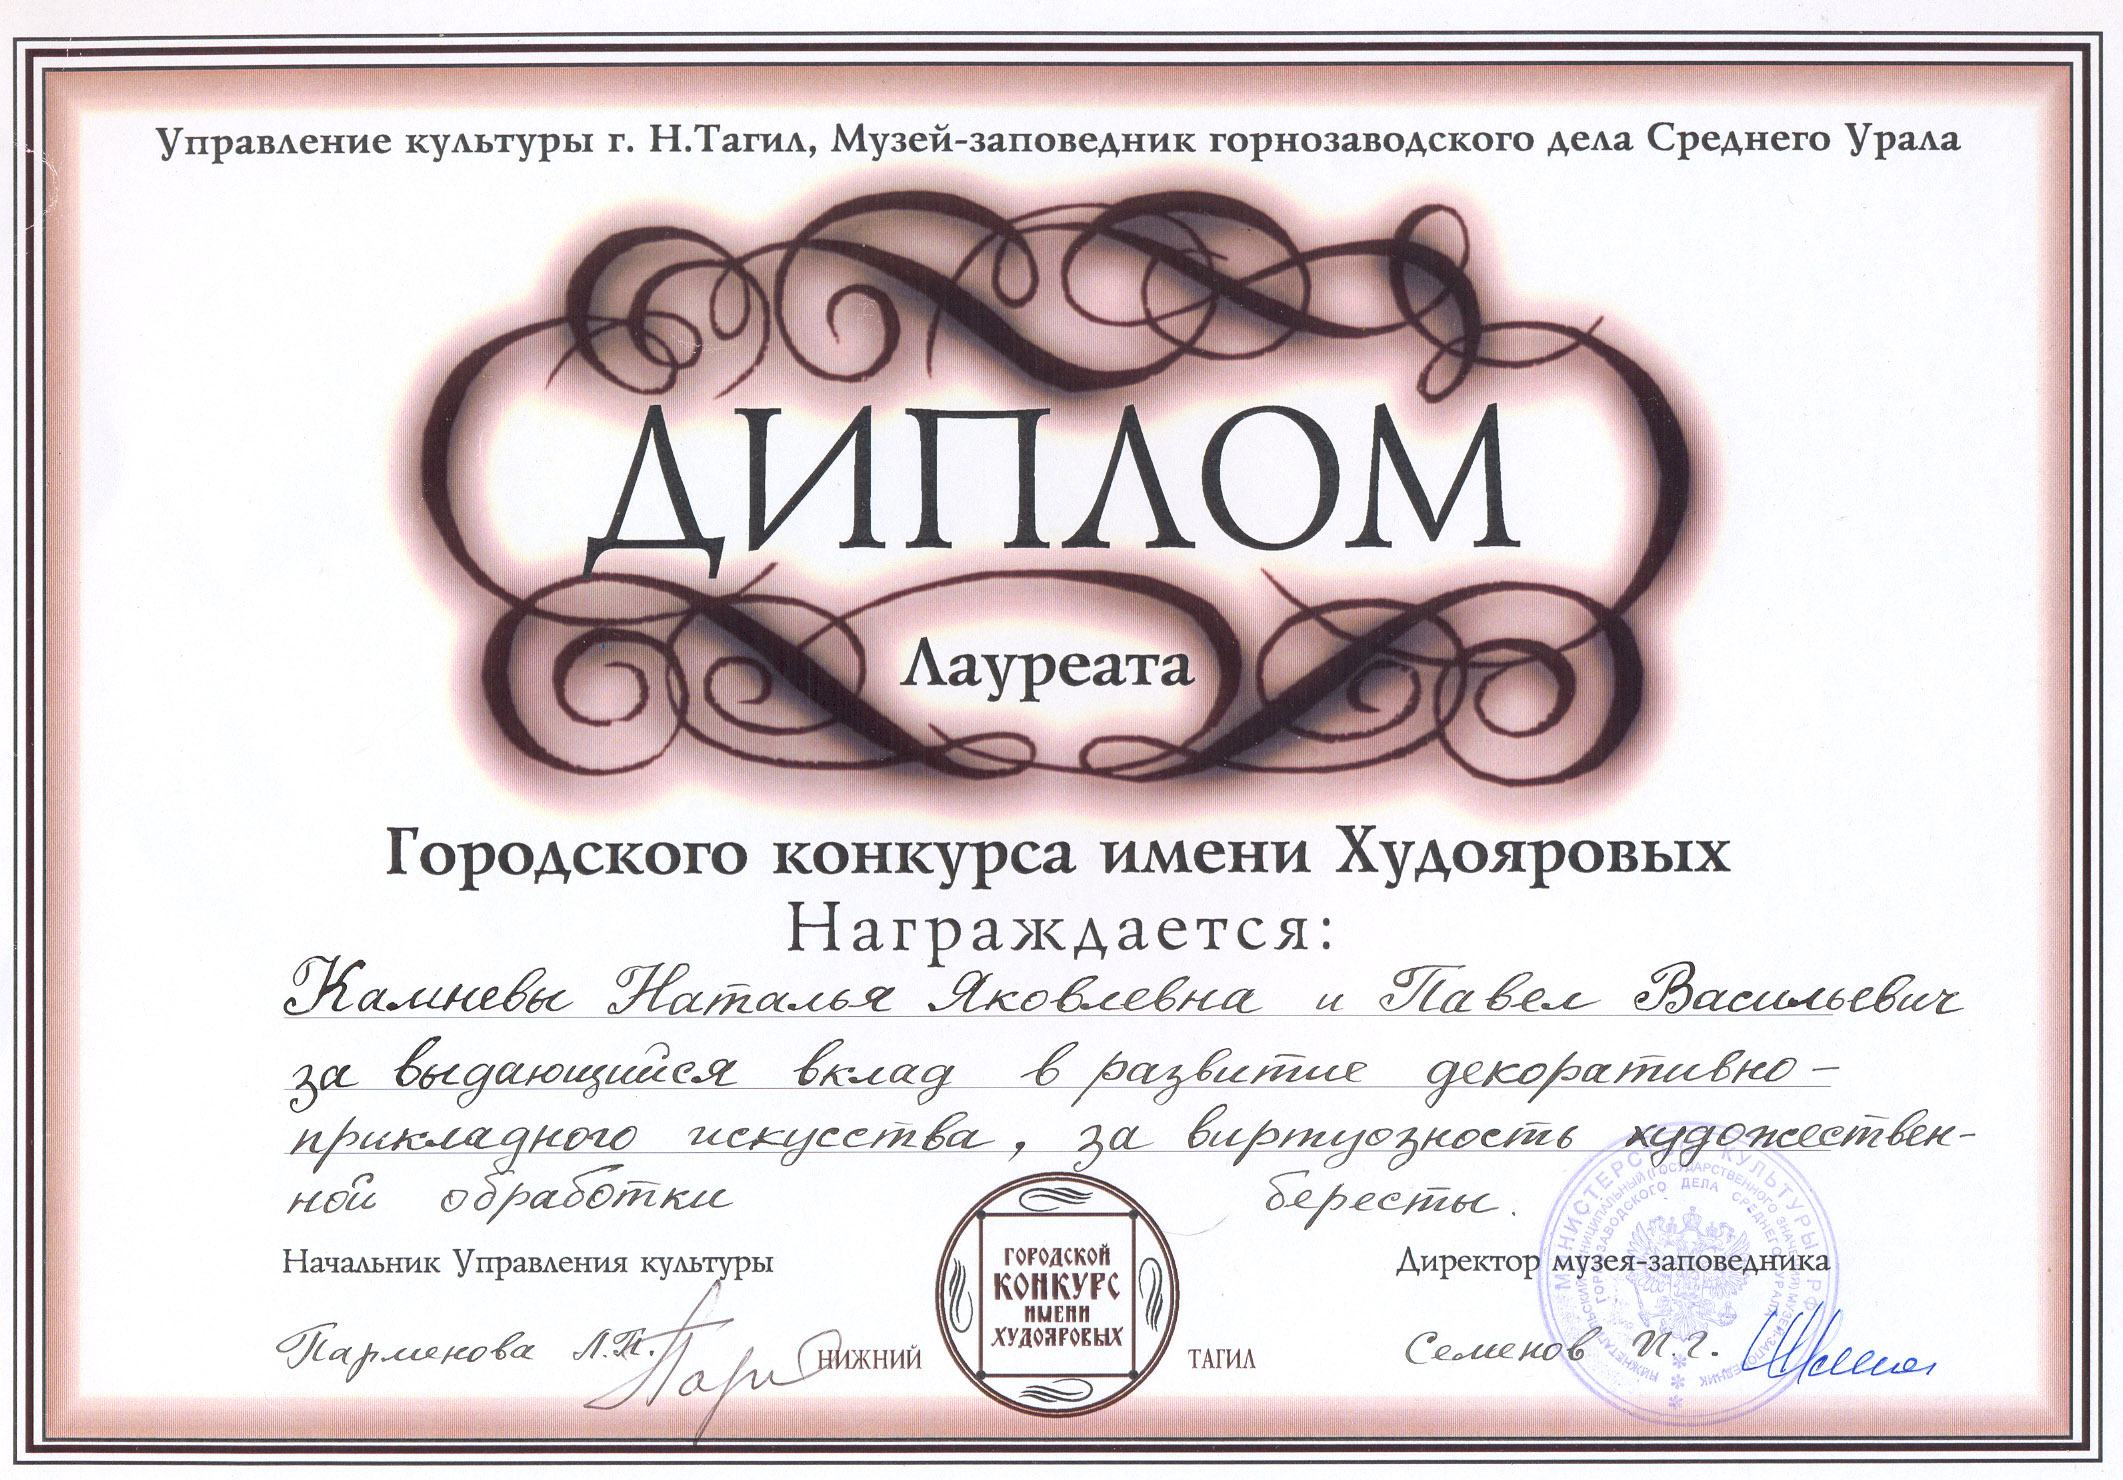 Управление культуры г. Н.Тагил, Музей-заповедник горнозаводского дела Среднего Урала
ДИПЛОМ
Лауреата
Городского конкурса имени Худояровых
Награждается:
Камневы Наталья Яковлевна и Павел Васильевич
за выдающийся вклад в развитие декоративно-
прикладного искусства, за виртуозность художествен-
ной обработки бересты.
Начальник Управления культуры
Директор музея-заповедника
ГОРОДСКОЙ
КОНКУРС
ИМЕНИ
ХУДОЯРОВЫХ
Парменова Л.П.
НИЖНИЙ
ТАГИЛ
Семенов И.Г.
МИНИСТЕРСТВО КУЛЬТУРЫ РФ
ГОРНОЗАВОДСКОГО ДЕЛА СРЕДНЕГО УРАЛА